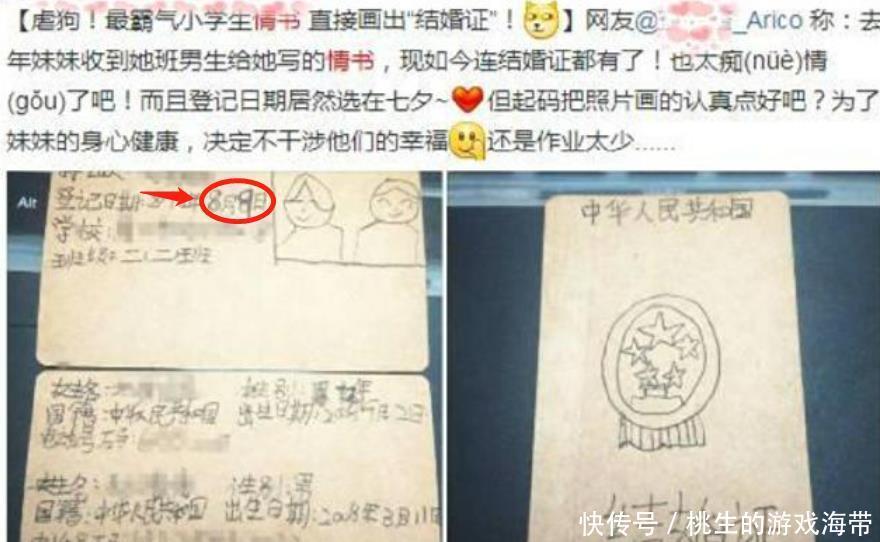 【虐狗！最霸气小学生情书 直接画出“结婚证”！】网友@ _Arico 称：去
年妹妹收到她班男生给她写的情书，现如今连结婚证都有了！也太痴(nüè)情
(gǒu)了吧！而且登记日期居然选在七夕~ 但起码把照片画的认真点好吧？为了
妹妹的身心健康，决定不干涉他们的幸福 还是作业太少......
Alt
登记日期: 8月9日
学校:
班级: 二、二班
国籍:中华人民共和国 出生日期:
性别:男
国籍:中华人民共和国 出生日期:2008年3月11日
中华人民共和国
快传号 / 桃生的游戏海带